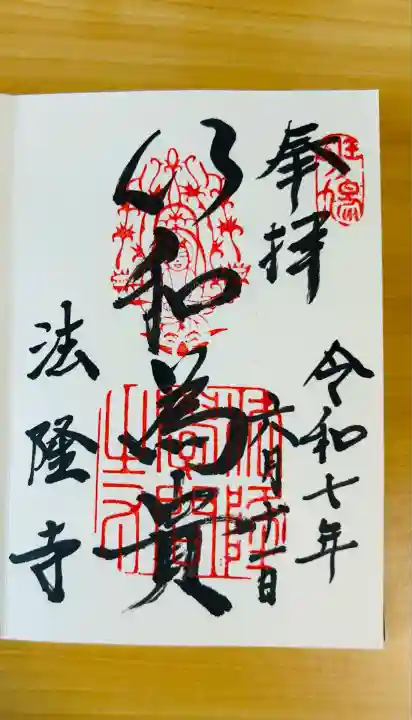 奉拝
令和七年
六月十一日
以和為貴
法隆寺
斑鳩